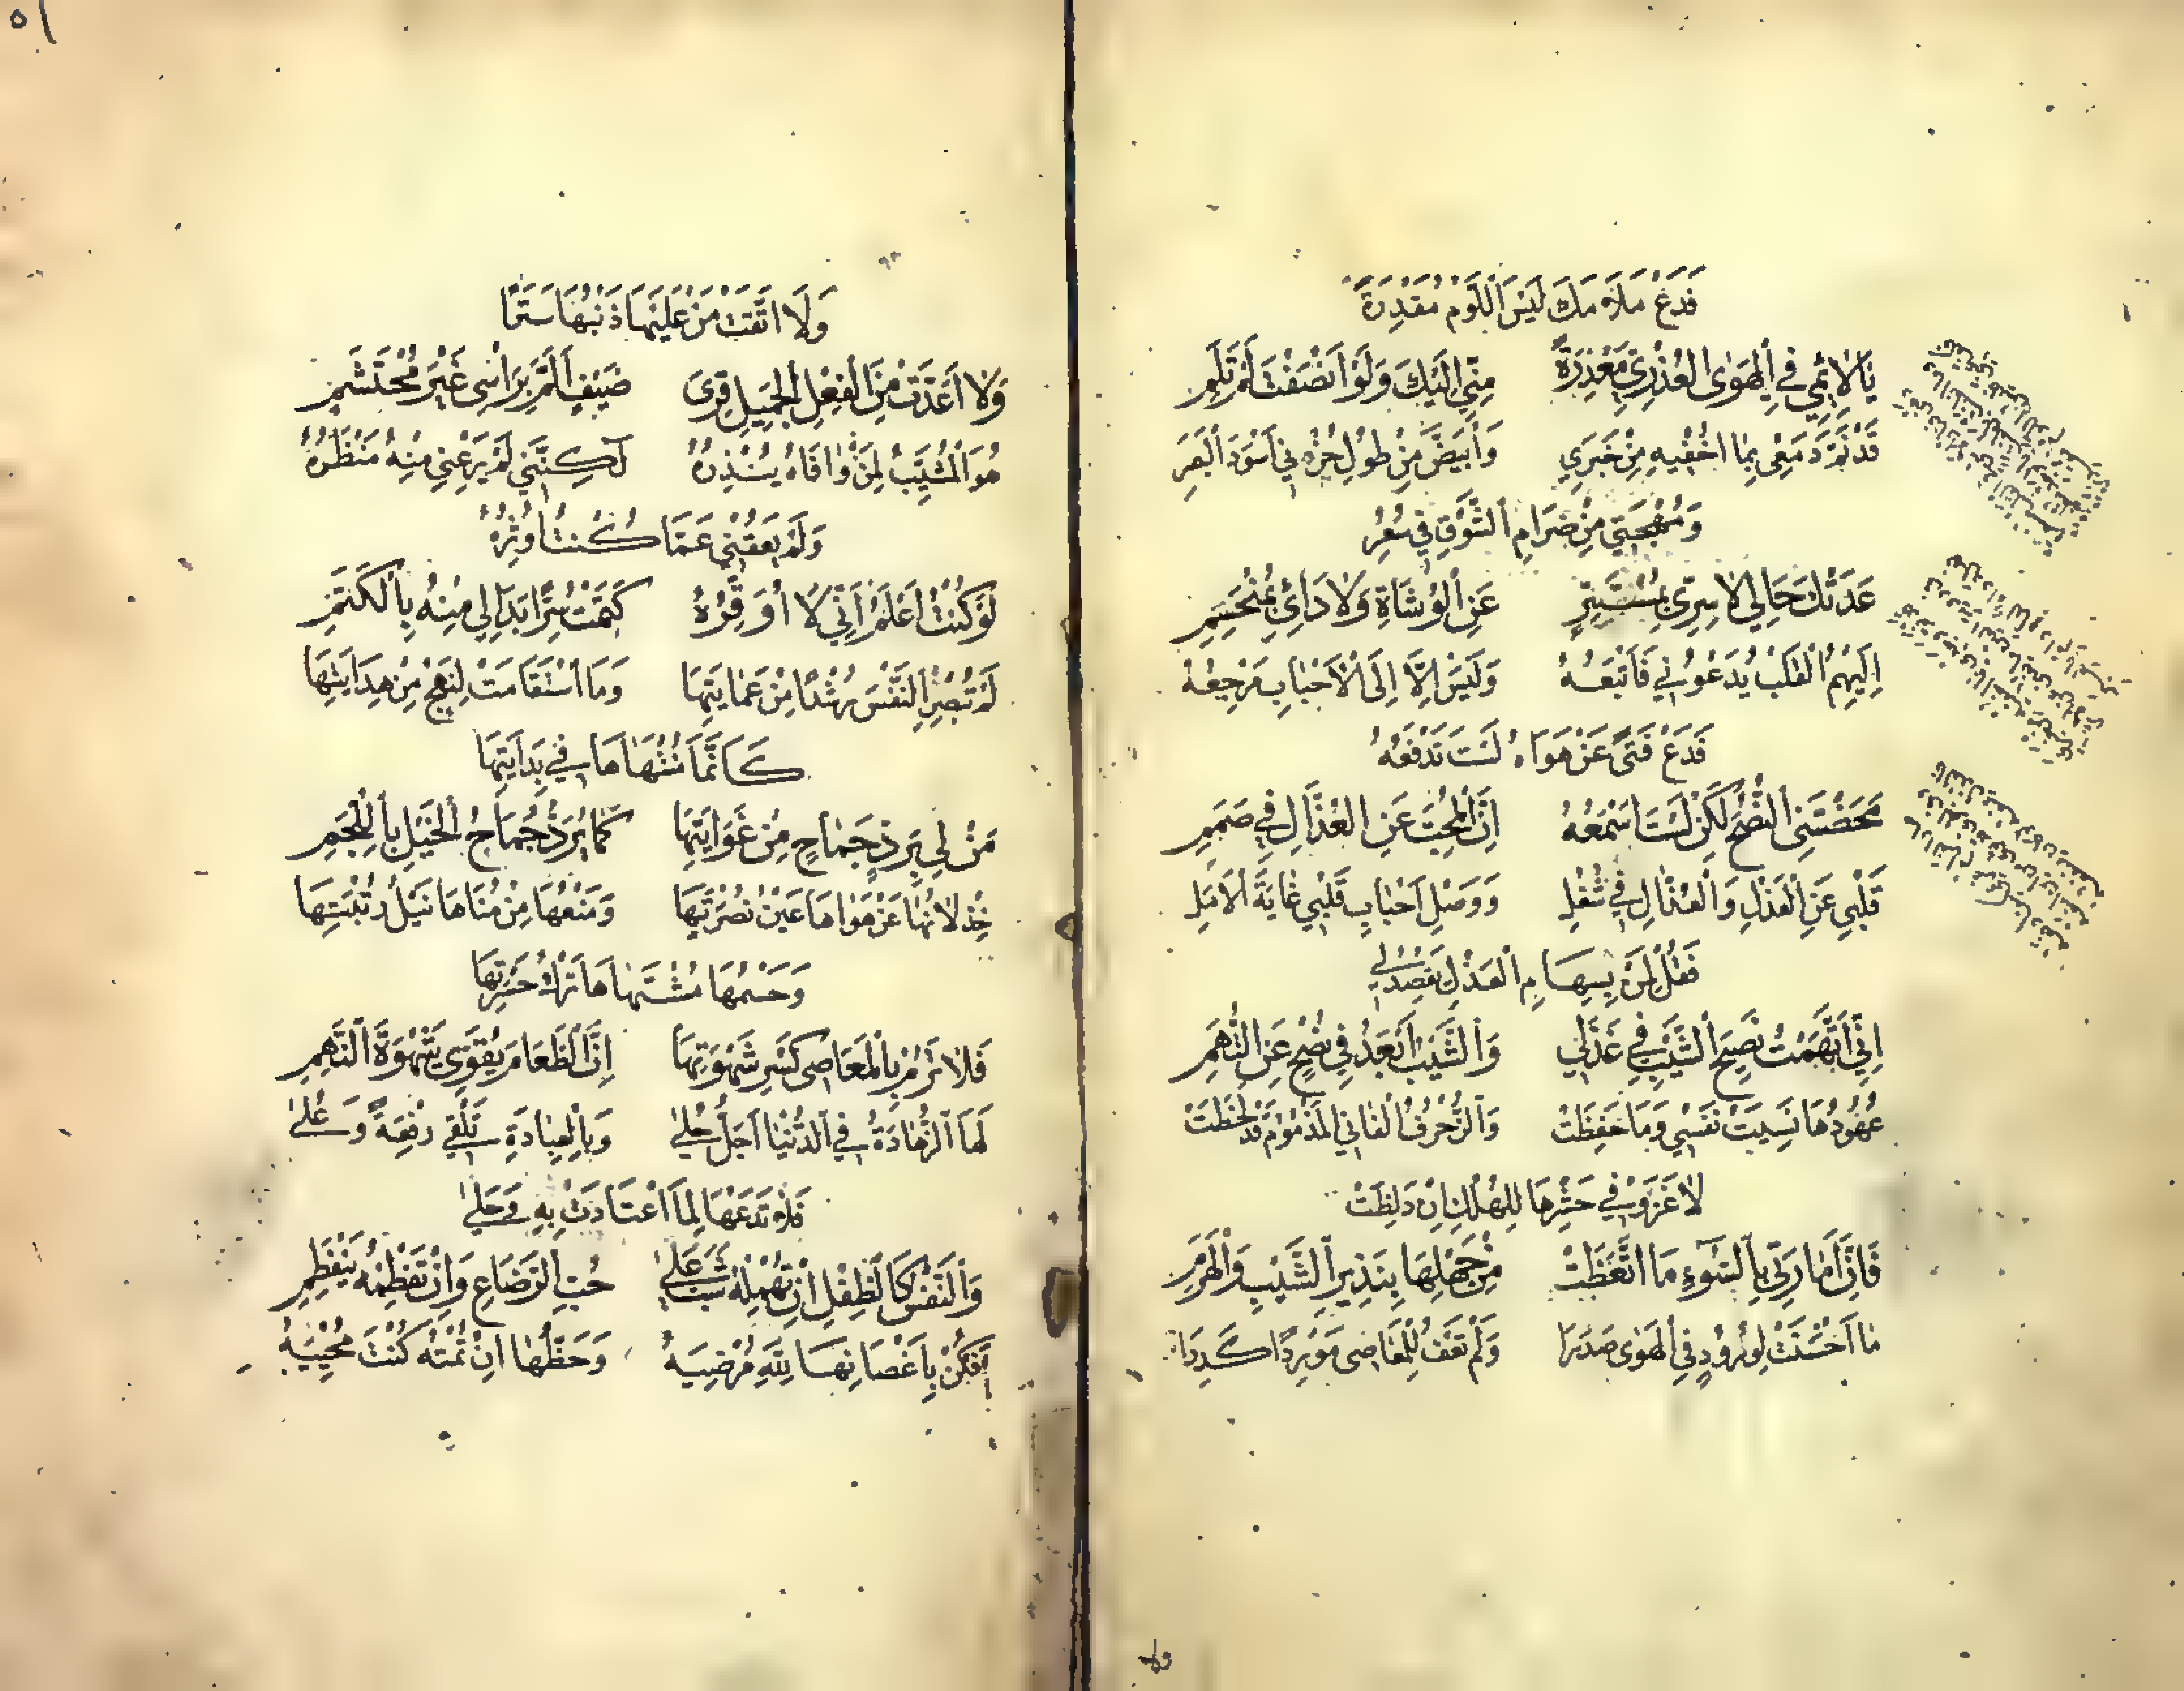 فَدَعْ مَلَامَكَ لَيْسَ اللَّوْمُ مَقْدِرَةً
يَا لَائِمِي فِي الْهَوَى الْعُذْرِيِّ مَعْذِرَةً مِنِّي إِلَيْكَ وَلَوْ أَنْصَفْتَ لَمْ تَلُمِ
قَدْ نَمَّ دَمْعِي بِمَا أُخْفِيهِ مِنْ خَبَرِي وَابْيَضَّ مِنْ طُولِ حُزْنِي أَسْوَدُ الْبَصَرِ
وَمُهْجَتِي مِنْ ضِرَامِ الشَّوْقِ فِي سُعُرِ
عَدَتْكَ حَالِي لَا سِرِّي بِمُسْتَتِرٍ عَنِ الْوُشَاةِ وَلَا دَائِي بِمُنْحَسِمِ
إِلَيْهِمُ الْقَلْبُ يَدْعُونِي فَأَتْبَعُهُ وَلَيْسَ إِلَّا إِلَى الْأَحْبَابِ مَرْجِعُهُ
فَدَعْ فَتًى عَنْ هَوَاهُ لَسْتَ تَدْفَعُهُ
مَحَضْتَنِي النُّصْحَ لَكِنْ لَسْتُ أَسْمَعُهُ إِنَّ الْمُحِبَّ عَنِ الْعُذَّالِ فِي صَمَمِ
قَلْبِي عَنِ الْعَذْلِ وَالْعُذَّالِ فِي شُغُلِ وَوَصْلُ أَحْبَابِ قَلْبِي غَايَةُ الْأَمَلِ
فَقُلْ لِمَنْ بِسِهَامِ الْعَذْلِ يَقْصِدُ لِي
إِنِّي اتَّهَمْتُ نَصِيحَ الشَّيْبِ فِي عَذَلِي وَالشَّيْبُ أَبْعَدُ فِي نُصْحٍ عَنِ التُّهَمِ
عُهُودُهَا نَسِيَتْ نَفْسِي وَمَا حَفِظَتْ وَالزُّخْرُفَ الْفَانِيَ الْمَذْمُومَ قَدْ لَحَظَتْ
لَا غَرْوَ فِي حَشْرِهَا لِلْهُلْكِ إِنْ دَلَظَتْ
فَإِنَّ أَمَّارَتِي بِالسُّوءِ مَا اتَّعَظَتْ مِنْ جَهْلِهَا بِنَذِيرِ الشَّيْبِ وَالْهَرَمِ
مَا أَحْسَنَتْ لِوُرُودٍ فِي الْهَوَى صَدَرَا وَلَمْ تَعَفْ لِلْمَعَاصِي مَوْرِدًا كَدِرَا
ولا
٥١
وَلَا اتَّقَتْ مَنْ عَلَيْهَا ذَنْبَهَا سَتَرَا
وَلَا أَعَدَّتْ مِنَ الْفِعْلِ الْجَمِيلِ قِرَى ضَيْفٍ أَلَمَّ بِرَأْسِي غَيْرَ مُحْتَشِمِ
هُوَ الْمَشِيبُ لِمَنْ وَافَاهُ يُنْذِرُهُ لَكِنَّنِي لَمْ يَرُعْنِي مِنْهُ مَنْظَرُهُ
وَلَمْ يَعُقْنِي عَمَّا كُنْتُ أُوثِرُهُ
لَوْ كُنْتُ أَعْلَمُ أَنِّي لَا أُوَقِّرُهُ كَتَمْتُ سِرًّا بَدَا لِي مِنْهُ بِالْكَتَمِ
لَمْ تُبْصِرِ النَّفْسُ رُشْدًا مِنْ عَمَايَتِهَا وَمَا اسْتَقَامَتْ لِنَهْجٍ مِنْ هِدَايَتِهَا
كَأَنَّمَا مُنْتَهَاهَا فِي بِدَايَتِهَا
مَنْ لِي بِرَدِّ جِمَاحٍ مِنْ غَوَايَتِهَا كَمَا يُرَدُّ جِمَاحُ الْخَيْلِ بِاللُّجُمِ
خِذْلَانُهَا عَنْ هَوَاهَا عَيْنُ نُصْرَتِهَا وَمَنْعُهَا مِنْ مُنَاهَا نَيْلُ رُتْبَتِهَا
وَحَسْمُهَا مُشْتَهَاهَا تَرْكُ حَسْرَتِهَا
فَلَا تَرُمْ بِالْمَعَاصِي كَسْرَ شَهْوَتِهَا إِنَّ الطَّعَامَ يُقَوِّي شَهْوَةَ النَّهِمِ
لَهَا الزَّهَادَةُ فِي الدُّنْيَا أَجَلُّ حُلَى وَبِالْعِبَادَةِ تَلْقَى رِفْعَةً وَعُلَى
فَلَا تَدَعْهَا لِمَا اعْتَادَتْ بِهِ
وَالنَّفْسُ كَالطِّفْلِ إِنْ تُهْمِلْهُ شَبَّ عَلَى حُبِّ الرَّضَاعِ وَإِنْ تَفْطِمْهُ يَنْفَطِمِ
فَكُنْ بِإِغْضَابِهَا لِلَّهِ مُرْضِيَهُ وَحَظُّهَا إِنْ تُمِتْهُ كُنْتَ مُحْيِيَهُ